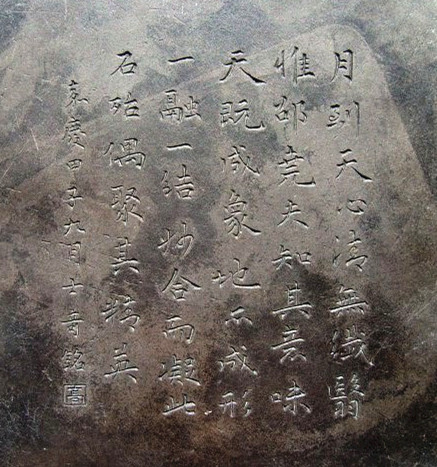 月到天心清無纖翳
惟邵堯夫知其味
天既成象地亦成形
一融一結妙合而凝此
石殆偶聚其精英
嘉慶甲子九月士銘